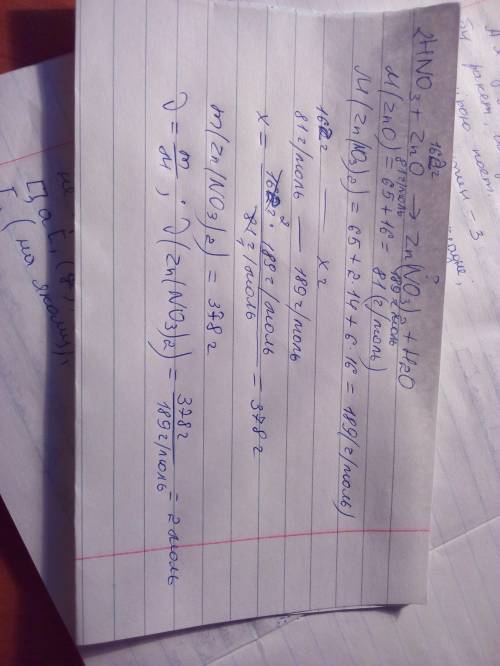 2HNO3 + ZnO → Zn(NO3)2 + H2O
162г ?
81г/моль 189г/моль
M(ZnO) = 65+16 = 81(г/моль)
M(Zn(NO3)2) = 65+2·14+6·16 = 189(г/моль)
162г — x г
81г/моль — 189г/моль
x = 162г · 189г/моль / 81г/моль = 378г
m(Zn(NO3)2) = 378г
ν = m/M ; ν(Zn(NO3)2) = 378г / 189г/моль = 2моль